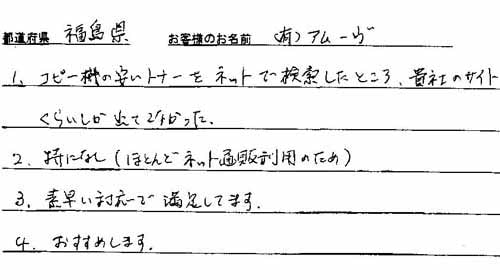 都道府県 福島県 お客様のお名前 (有)アムーヴ
1. コピー機の安いトナーをネットで検索したところ、貴社のサイト
くらいしか出てこなかった.
2. 特になし(ほとんどネット通販利用のため)
3. 素早い対応で満足してます.
4. おすすめします.